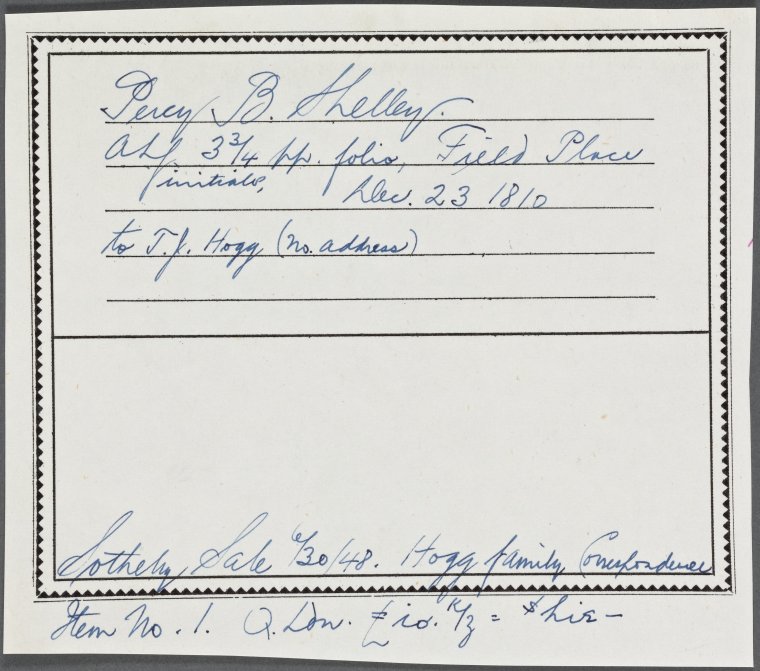 Percy B. Shelley.
ALf 3 3/4 pp. folio, Field Place
initials, Dec. 23 1810
to T. J. Hogg (no address)
Sotheby Sale 6/30/48. Hogg family Correspondence
Item No. 1. Q. Don. =